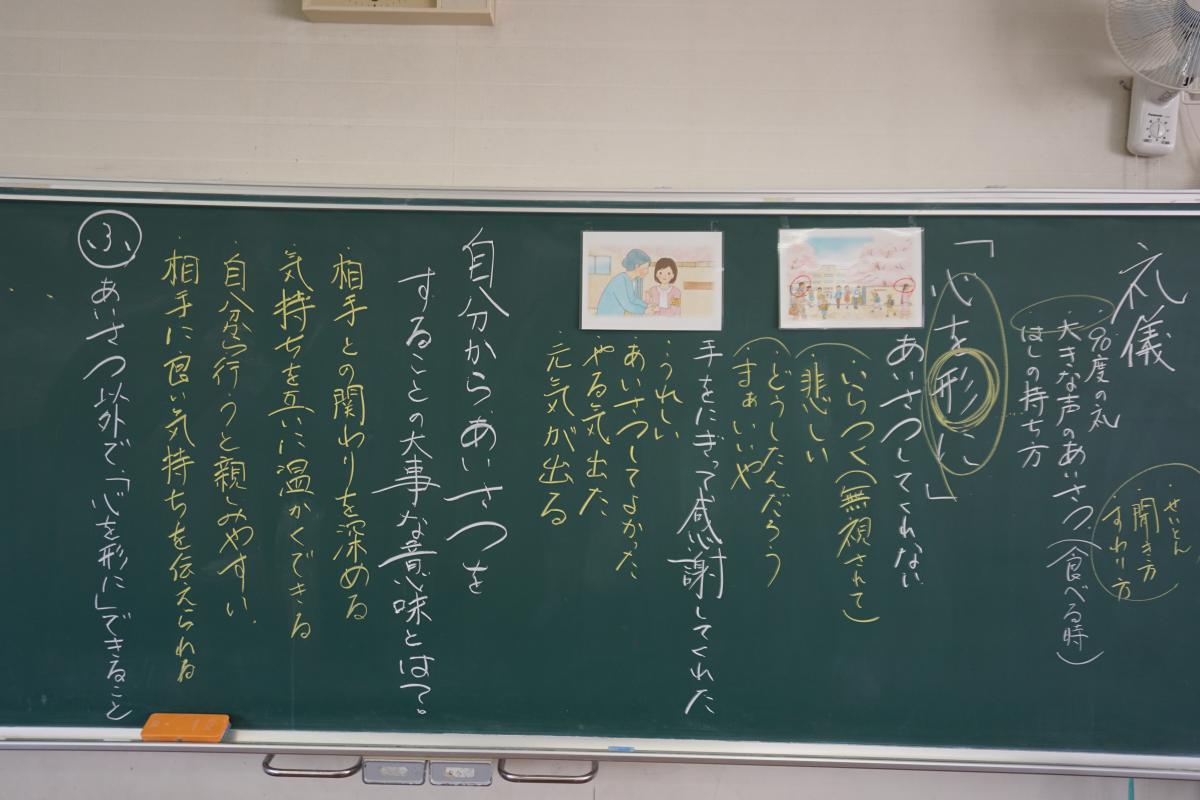 礼儀
・90度の礼
・大きな声のあいさつ(食べる時)
はしの持ち方
・せいとん
聞き方
すわり方
「心を形に」
あいさつしてくれない
・いらつく(無視されて)
・悲しい
・どうしたんだろう
・まぁいいや
手をにぎって感謝してくれた
・うれしい
・あいさつしてよかった
・やる気出た
・元気が出る
自分からあいさつを
することの大事な意味とは?
・相手との関わりを深める
・気持ちを互いに温かくできる
・自分から行うと親しみやすい
・相手に良い気持ちを伝えられる
ふ
あいさつ以外で、「心を形に」できること